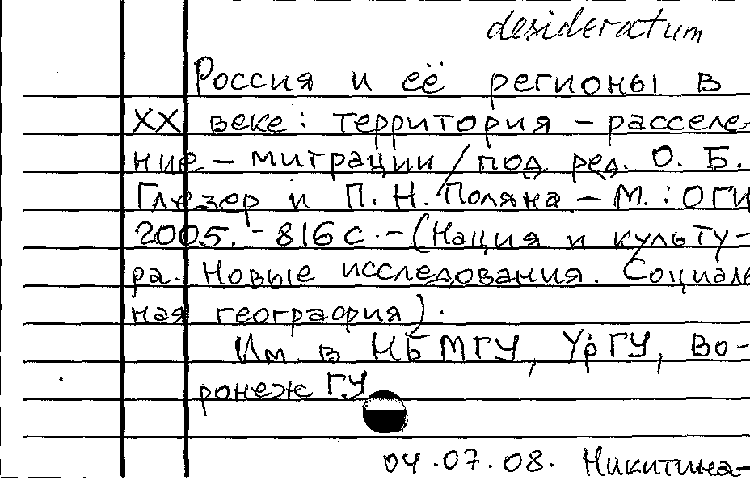 desideratum
Россия и её регионы в
XX веке: территория - расселе-
ние - миграции / под ред. О. Б.
Глезер и П. Н. Поляна - М.: ОГИ
2005. - 816 с. - (Нация и культу-
ра. Новые исследования. Социаль
ная география).
Им. в НБ МГУ, УрГУ, Во-
ронеж ГУ
04.07.08. Никитина-